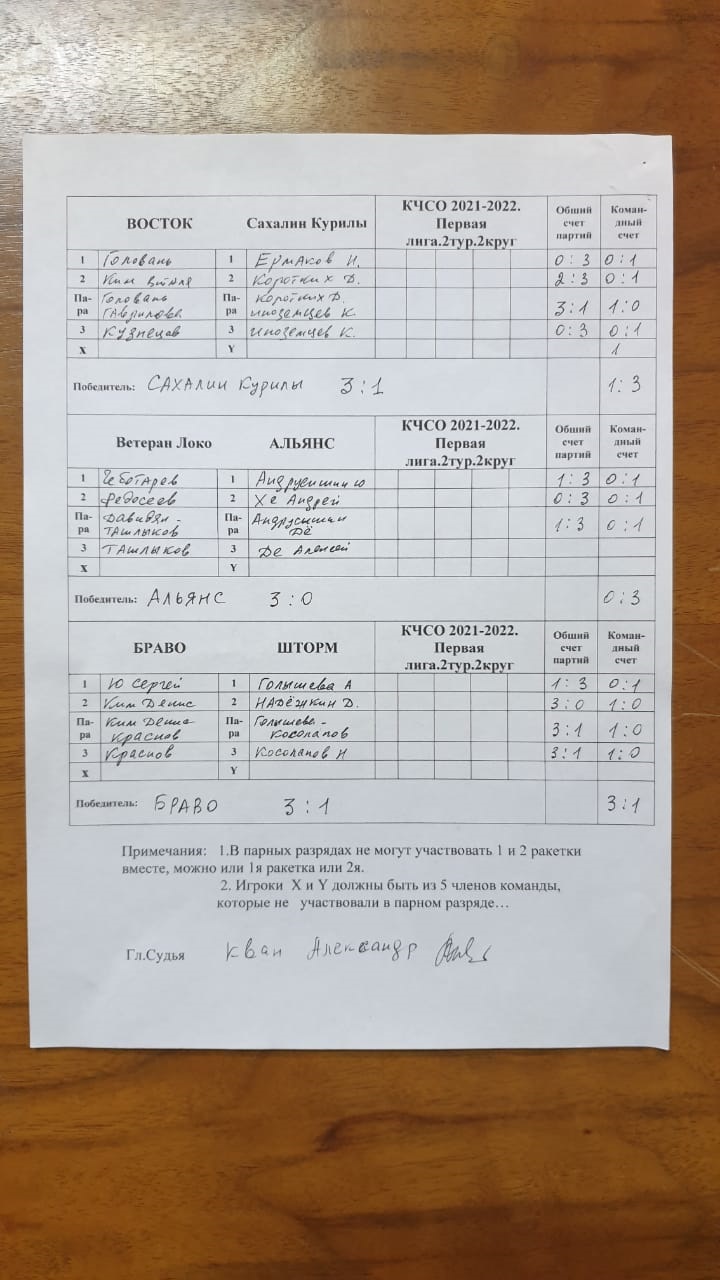 ВОСТОК Сахалин Курилы КЧСО 2021-2022. Первая лига.2тур.2круг Общий счет партий Коман-дный счет
1 Головань 1 Ермаков И. 0:3 0:1
2 Ким 2 Коротких Д. 2:3 0:1
Па-ра Головань Гаврилова Па-ра Коротких Д. Иноземцев К. 3:1 1:0
3 Кузнецов 3 Иноземцев К. 0:3 0:1
X Y 1
Победитель: САХАЛИН Курилы 3:1 1:3
Ветеран Локо АЛЬЯНС КЧСО 2021-2022. Первая лига.2тур.2круг Общий счет партий Коман-дный счет
1 Чеботарев 1 1:3 0:1
2 Федосеев 2 Хе Андрей 0:3 0:1
Па-ра Давидян - Ташлыков Па-ра Де 1:3 0:1
3 Ташлыков 3 Де Алексей
X Y
Победитель: АЛЬЯНС 3:0 0:3
БРАВО ШТОРМ КЧСО 2021-2022. Первая лига.2тур.2круг Общий счет партий Коман-дный счет
1 Ю Сергей 1 Голышева А 1:3 0:1
2 Ким Денис 2 Надёжкин Д. 3:0 1:0
Па-ра Ким Денис Краснов Па-ра Голышева - Косолапов 3:1 1:0
3 Краснов 3 Косолапов Н 3:1 1:0
X Y
Победитель: БРАВО 3:1 3:1
Примечания: 1.В парных разрядах не могут участвовать 1 и 2 ракетки
вместе, можно или 1я ракетка или 2я.
2. Игроки X и Y должны быть из 5 членов команды,
которые не участвовали в парном разряде…
Гл.Судья Кван Александр